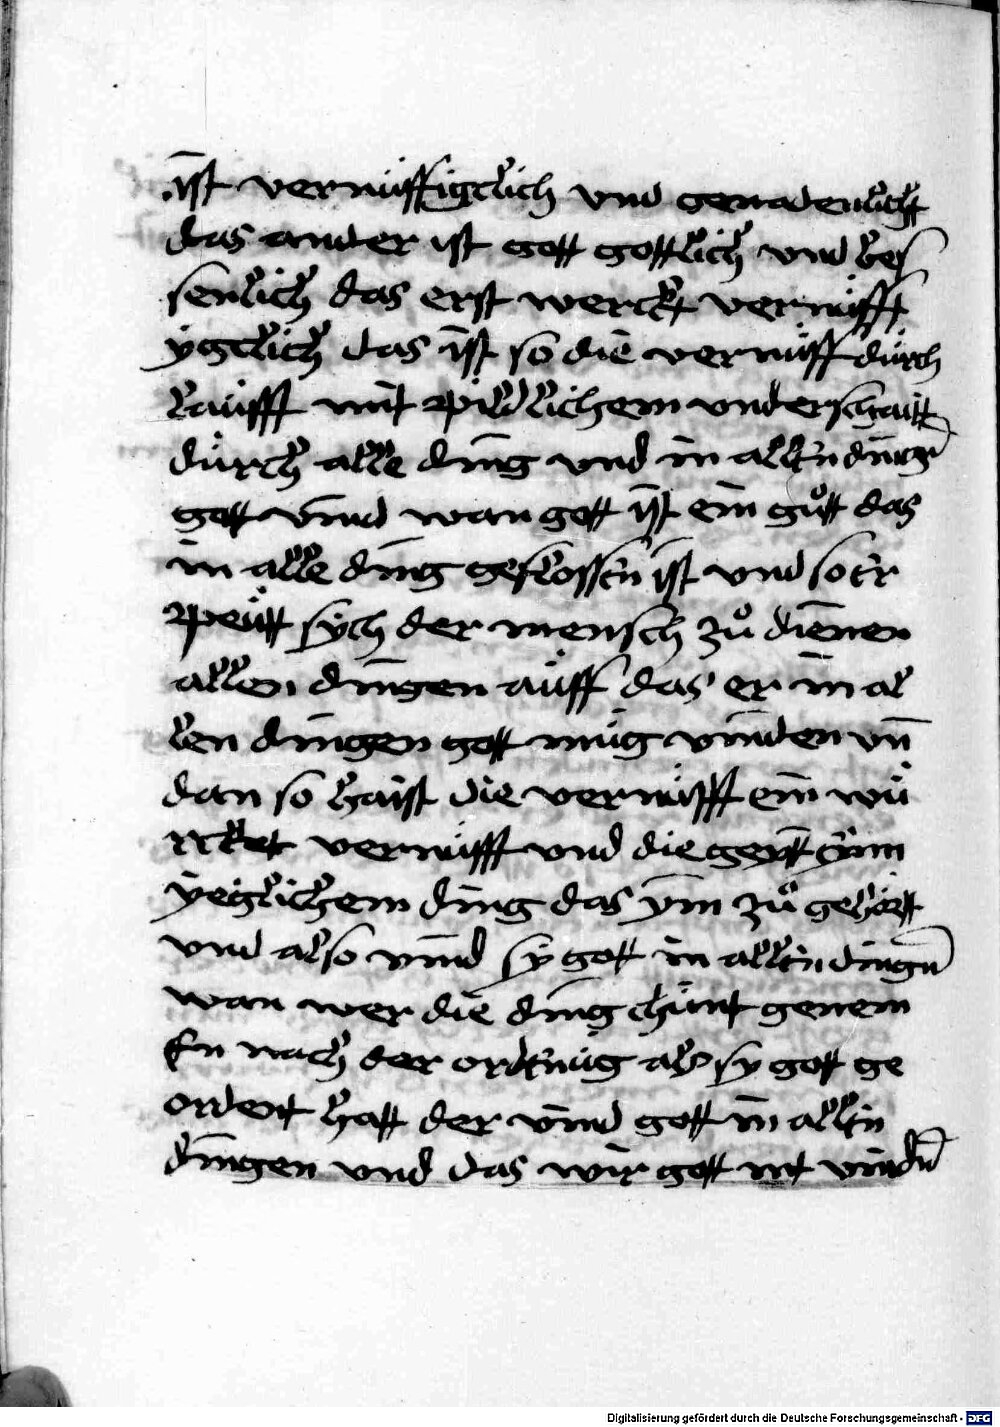 ist vernüffigclich vnd genadenlicht
das ander ist gott gottlich vnd bes
senlich das erst werckt vernüfft
ygclich das ist so die vernüfft dürch
laüfft mit pildlichem vnderschaitt
dürch alle ding vnd in alltn dingn
gott vind wan gott ist ein gůtt das
in alle ding geflosstn ist vnd so er
peütt sych der mensch zů dienen
allen dingen aüff das er in al
len dingen gott müg vinden vn̄
dan so haist die vernüfft ein wü
rcket vernüfft vnd die geytt
yeglichem ding das ym zů gehört
vnd also vind sy gott in alltn dingn
wan wer die ding chünt genem
en nach der ordnüg als sy gott ge
ordent hatt der vind gott in alltn
dingen vnd das wir gott nit vindn
Digitalisierung gefördert durch die Deutsche Forschungsgemeinschaft - DFG